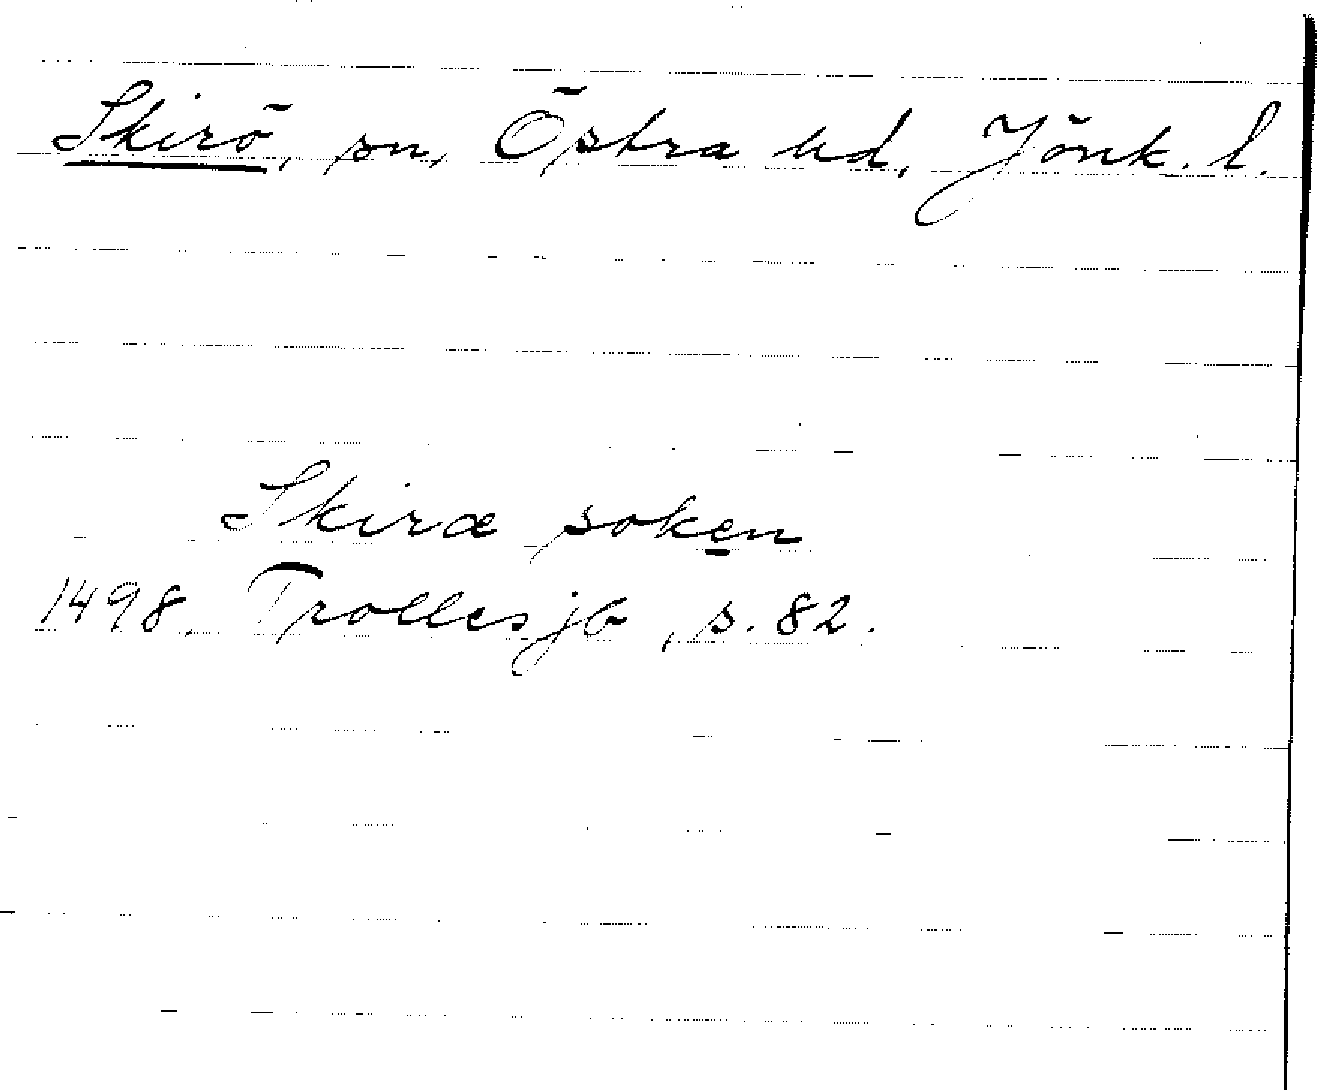 Skirö, sn, Östra hd, Jönk. l.
Skiræ soken
1498. Trolles jb, s. 82.